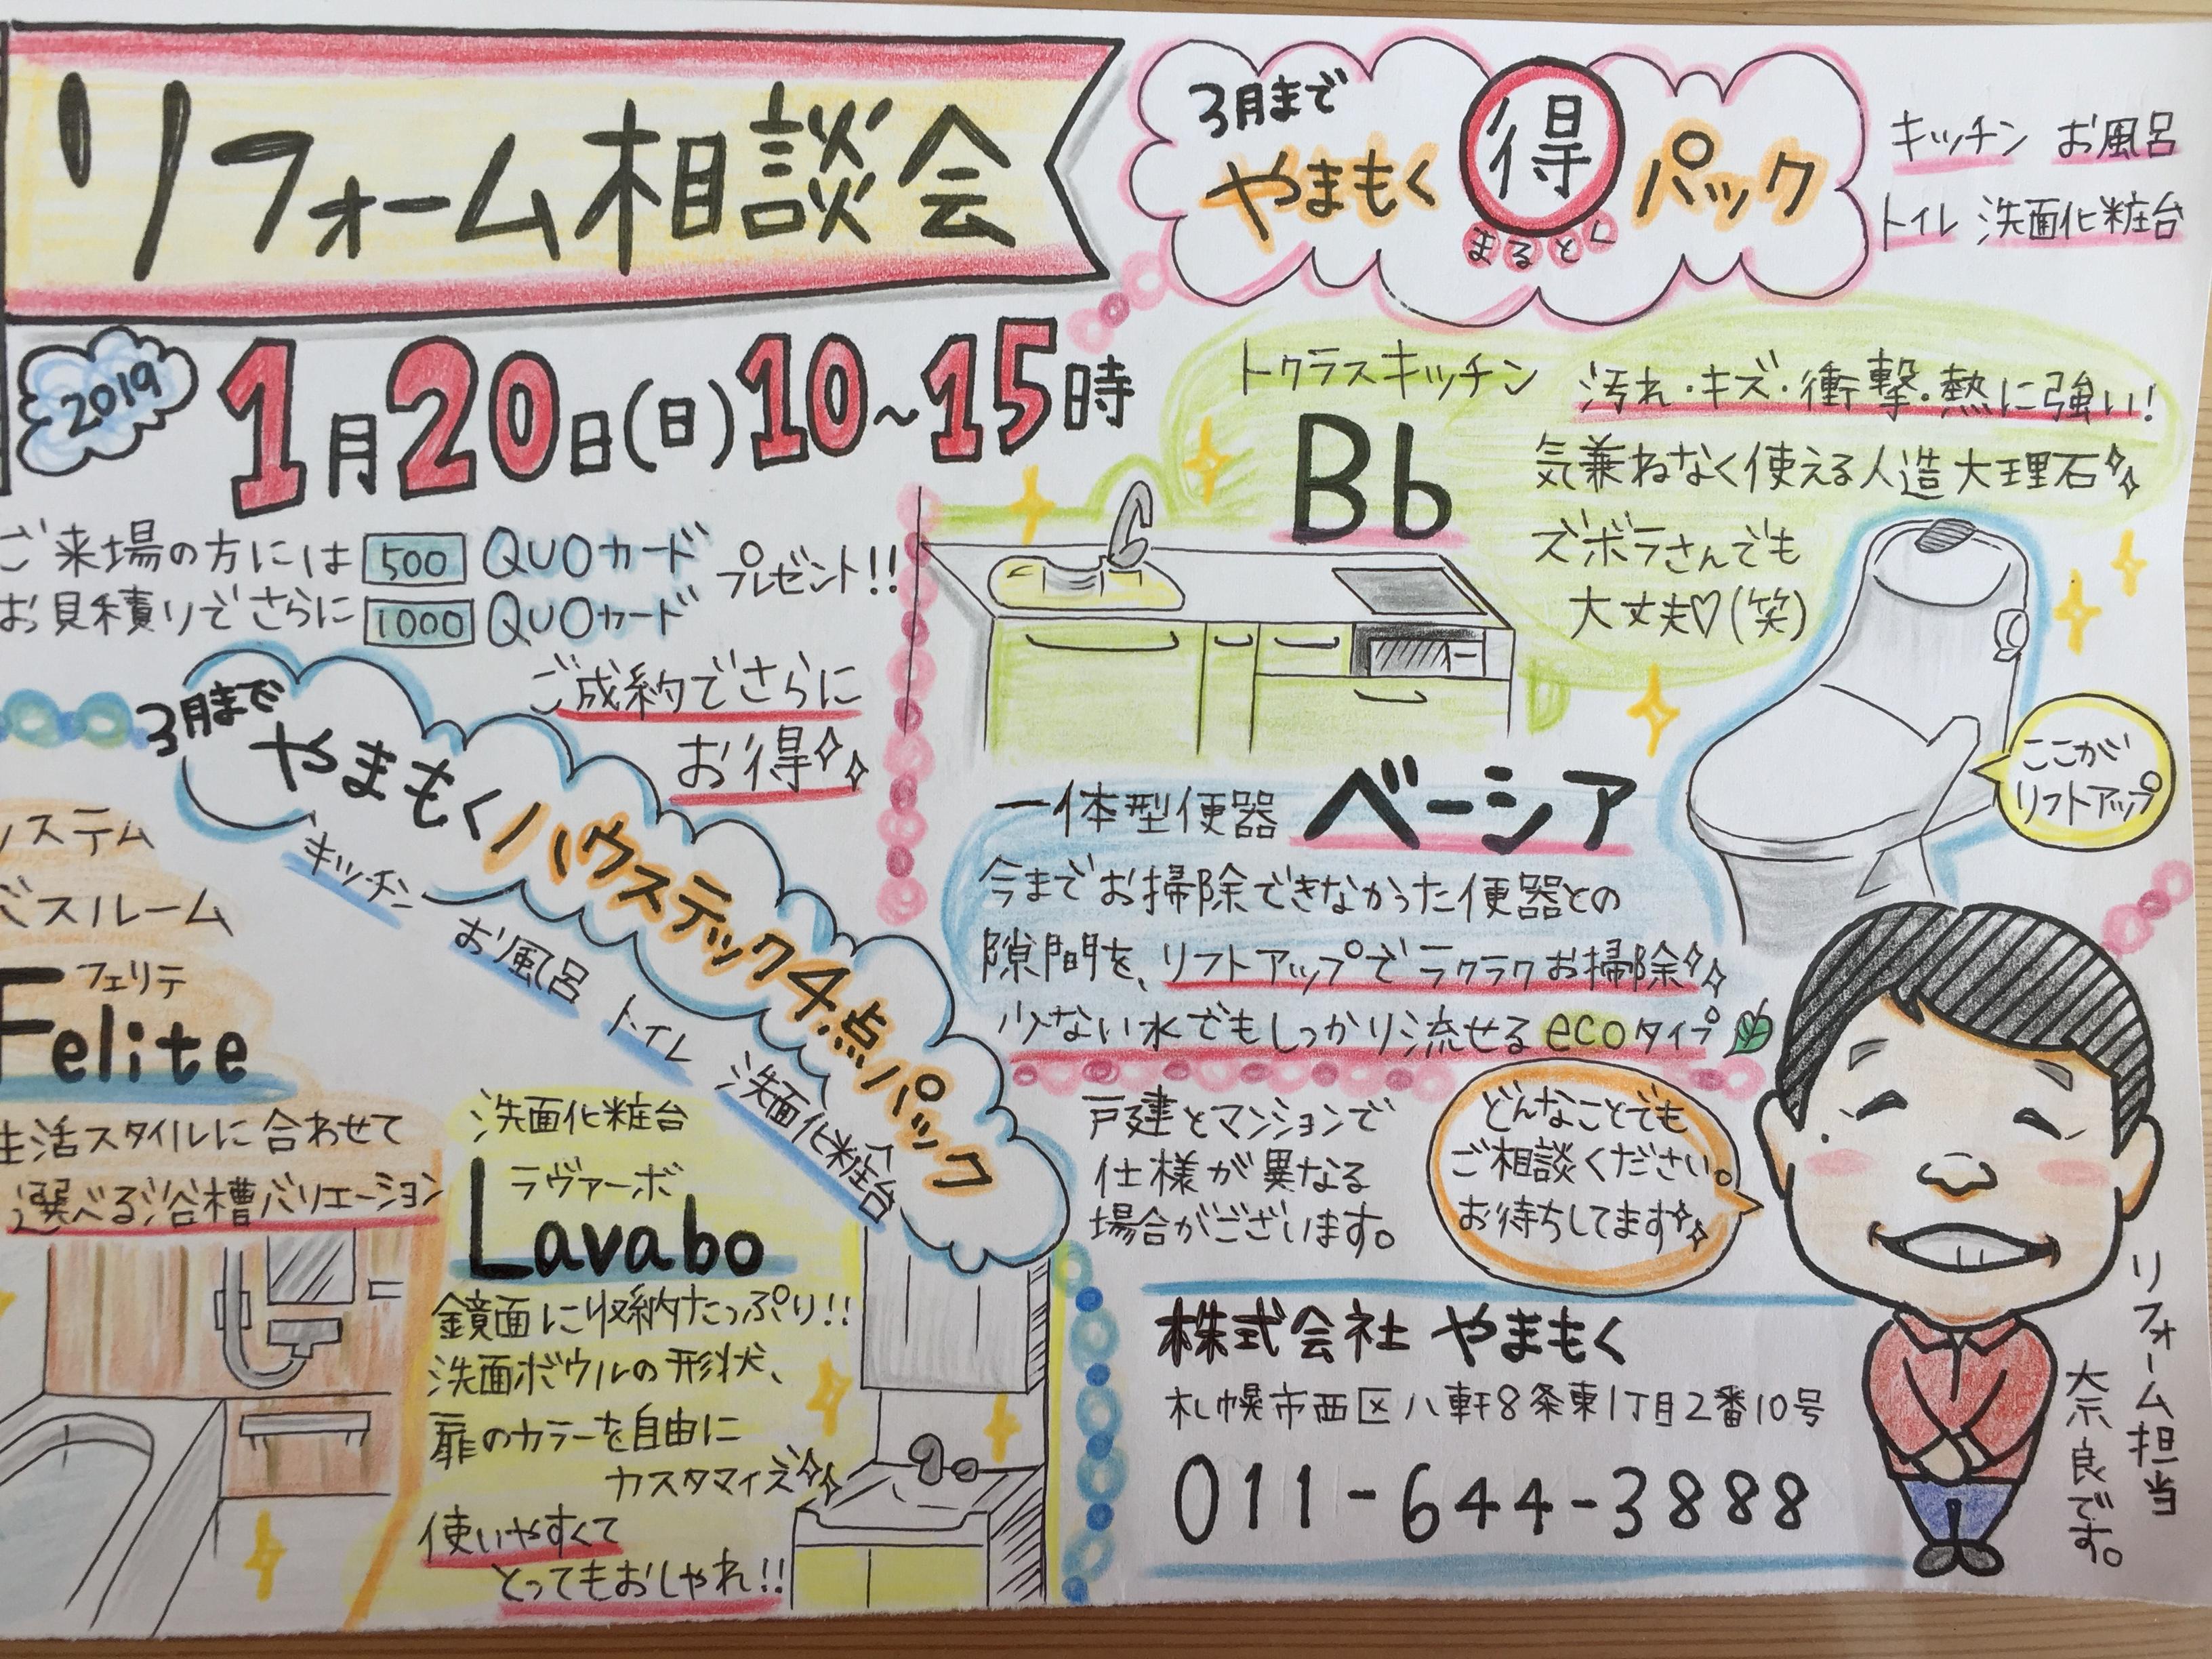 リフォーム相談会
2019
1月20日(日)10~15時
ご来場の方には 500 QUOカード
お見積りでさらに 1000 QUOカード
プレゼント!!
ご成約でさらに
お得
3月まで
やまもくハウステック4点パック
キッチン お風呂 トイレ 洗面化粧台
システム
バスルーム
フェリテ
Felite
生活スタイルに合わせて
選べる浴槽バリエーション
洗面化粧台
ラヴァーボ
Lavabo
鏡面に収納たっぷり!!
洗面ボウルの形状、
扉のカラーを自由に
カスタマイズ
使いやすくて
とってもおしゃれ!!
3月まで
やまもく 得 パック
まるとく
キッチン お風呂
トイレ 洗面化粧台
トクラスキッチン
Bb
汚れ・キズ・衝撃・熱に強い!
気兼ねなく使える人造大理石
ズボラさんでも
大丈夫♡(笑)
一体型便器 ベーシア
ここが
リフトアップ
今までお掃除できなかった便器との
隙間を、リフトアップでラクラクお掃除
少ない水でもしっかり流せるecoタイプ
戸建とマンションで
仕様が異なる
場合がございます。
どんなことでも
ご相談ください。
お待ちしてます
株式会社 やまもく
札幌市西区八軒8条東1丁目2番10号
011-644-3888
リフォーム担当
奈良です。